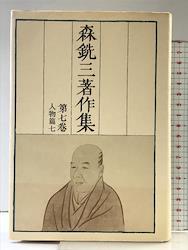 森銑三著作集
第七巻
人物篇七